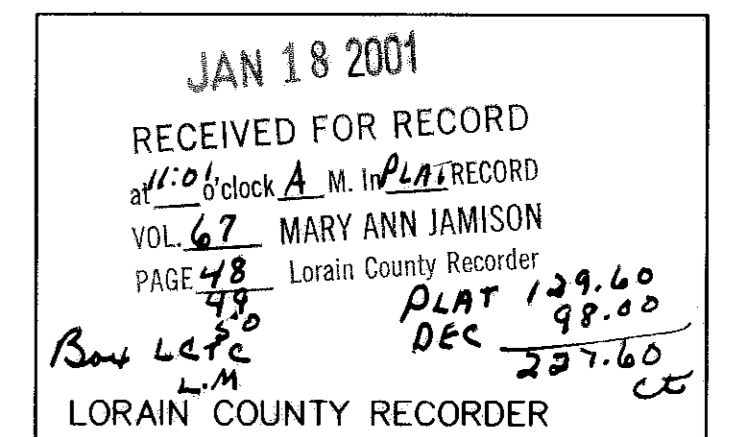 JAN 18 2001
RECEIVED FOR RECORD
at 11:01 o'clock A M. In PLAT RECORD
VOL. 67 MARY ANN JAMISON
PAGE 48 Lorain County Recorder
49
50
PLAT 129.60
DEC 98.00
227.60
Box LCTC
L.M
ct
LORAIN COUNTY RECORDER